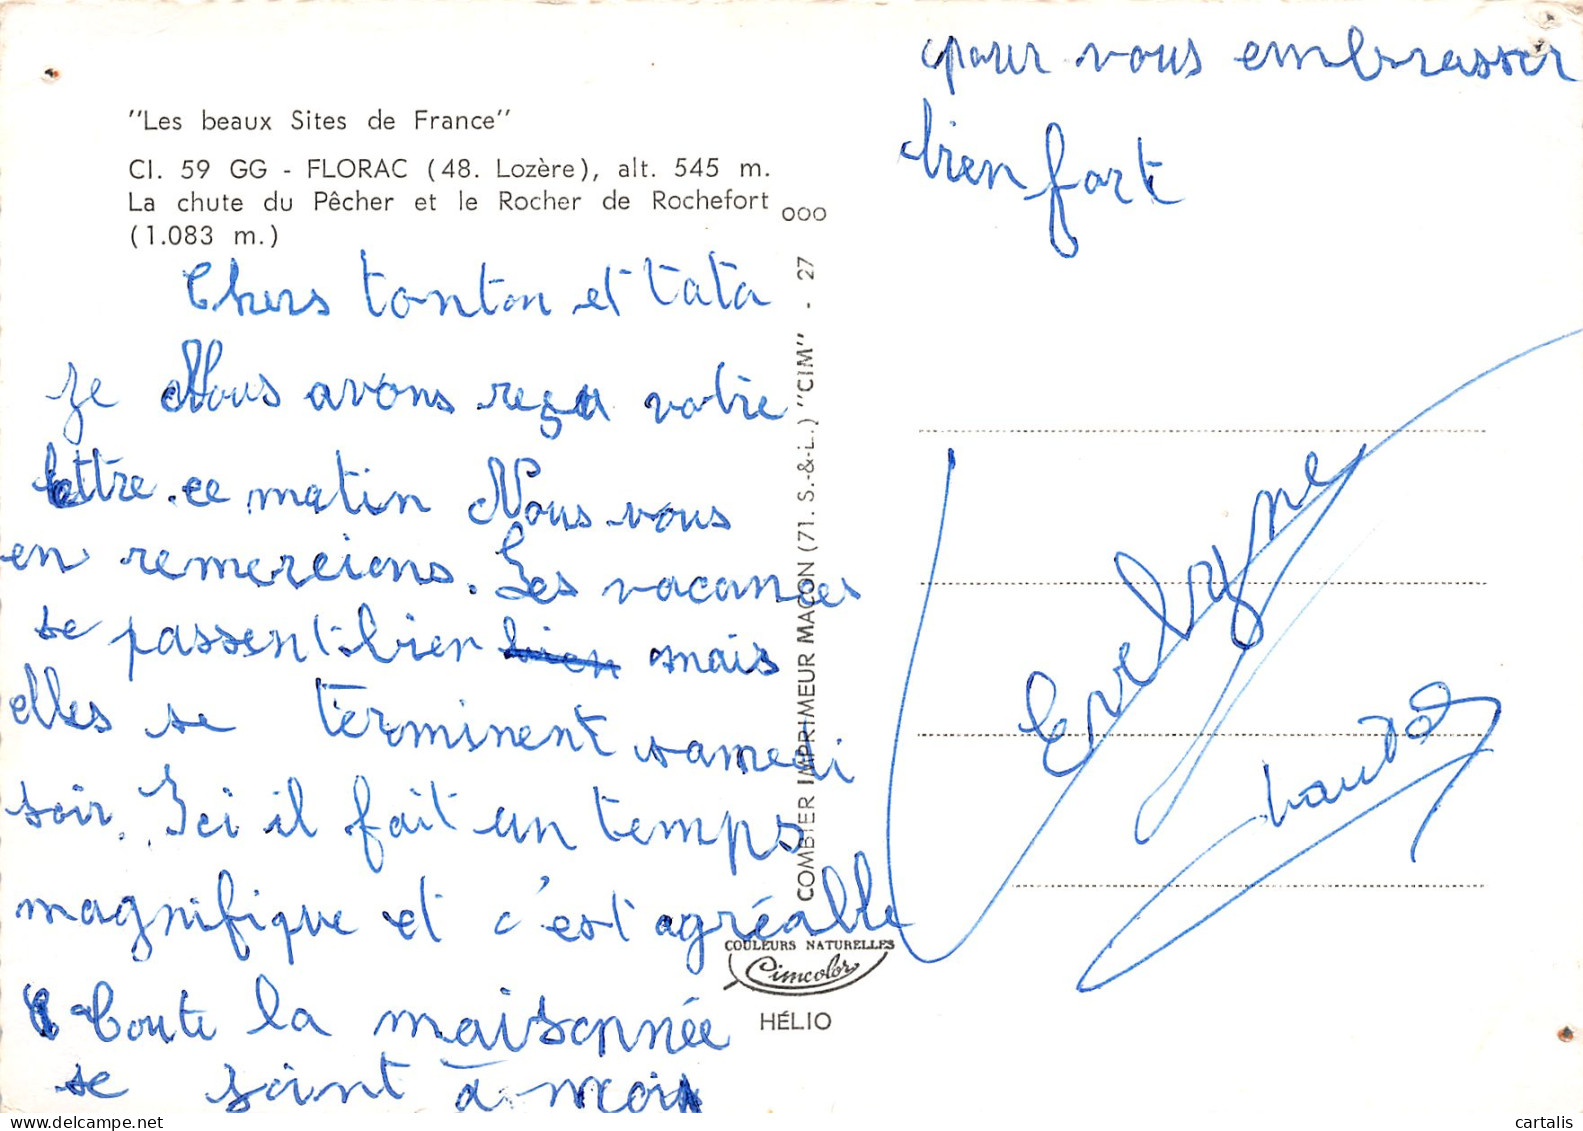 "Les beaux Sites de France"
CI. 59 GG - FLORAC (48. Lozère), alt. 545 m.
La chute du Pêcher et le Rocher de Rochefort
(1.083 m.)
Chers tonton et tata
je Nous avons reçu votre
lettre ce matin Nous vous
en remercions. Les vacances
se passent bien bien mais
elles se terminent samedi
soir. Ici il fait un temps
magnifique et c'est agréable
Toute la maisonnée
se joint à moi
pour vous embrasser
bien fort
Evelyne
COMBIER IMPRIMEUR MACON (71. S.-&-L.) "CIM" - 27
ooo
COULEURS NATURELLES
Cimcolor
HÉLIO
www.delcampe.net
cartalis